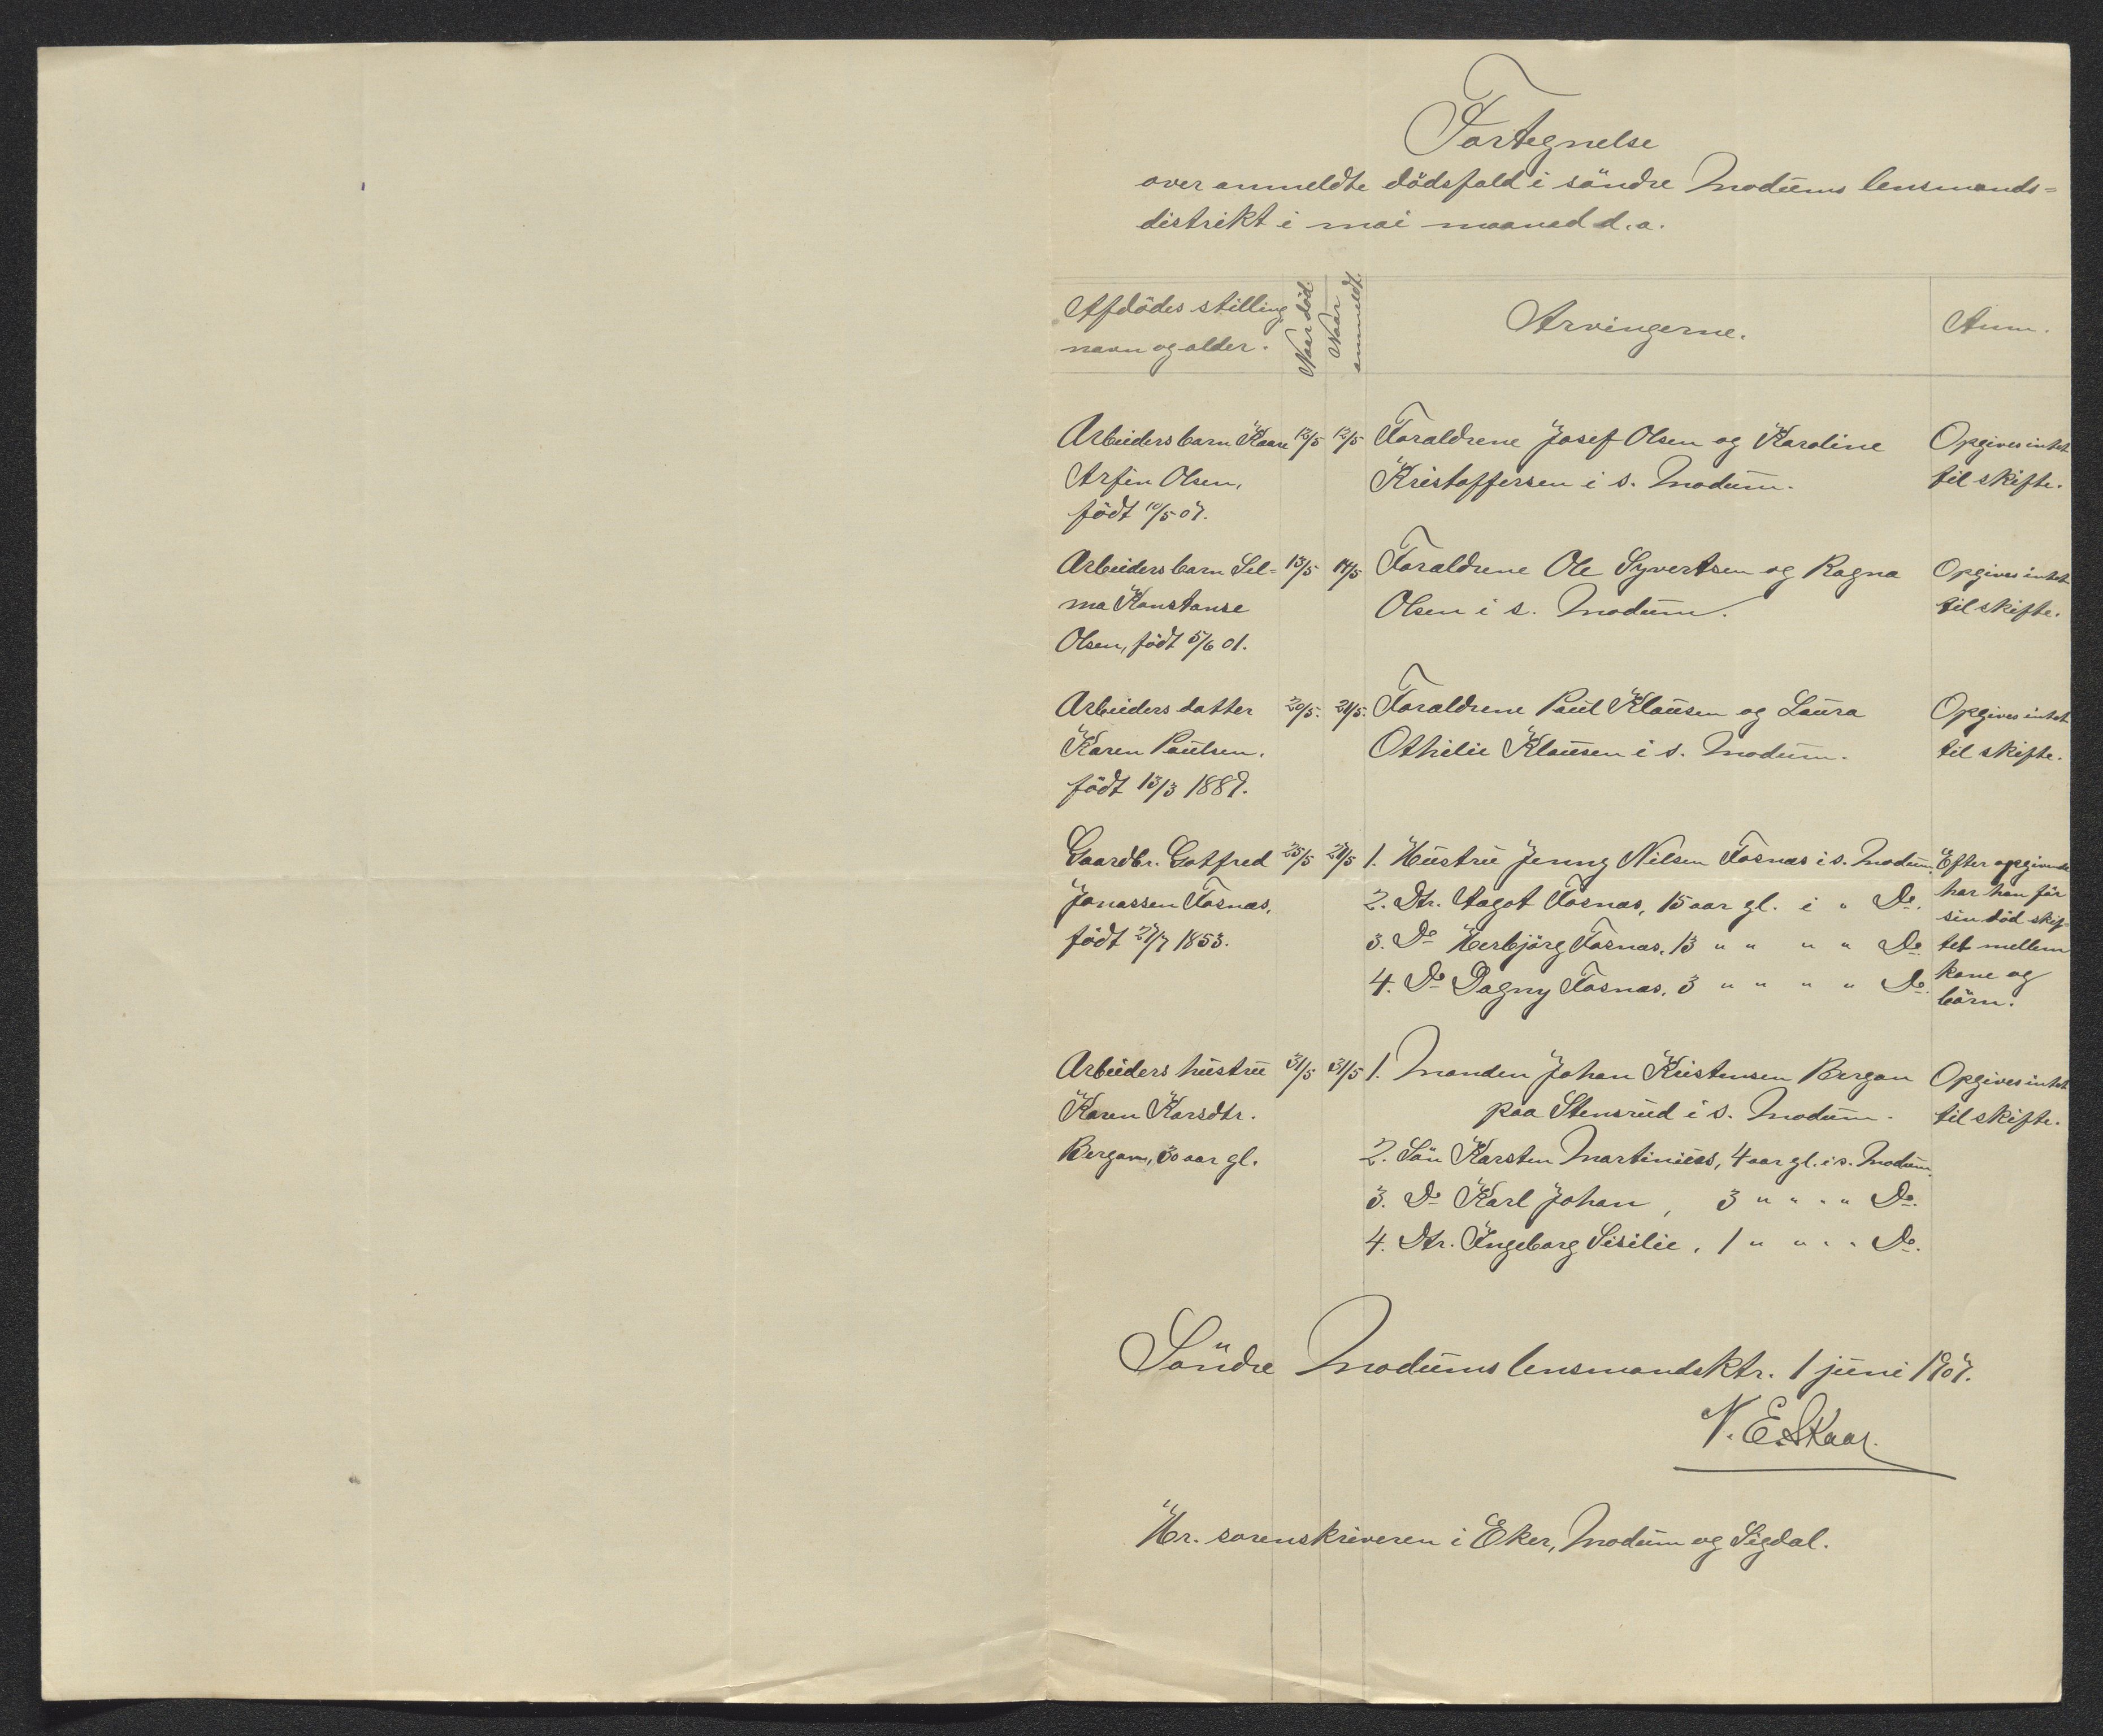 Fortegnelse
over anmeldte dödsfald i söndre Modums lensmands=
distrikt i mai maaned d.a.
Afdödes stilling
navn og alder.
Naar död
Naar
anmeldt
Arvingerne.
Anm.
Arbeiders barn Kaare 12/5 12/5 Foraldrene Josef Olsen og Karoline Opgives intet
Arfin Olsen, Kristoffersen i s. Modum. til skifte.
födt 10/5 07.
Arbeiders barn Sel= 13/5 14/5 Foraldrene Ole Syvertsen og Ragna Opgives intet
ma Konstanse Olsen i s. Modum. til skifte.
Olsen, födt 5/6 01.
Arbeiders datter 20/5. 21/5. Foraldrene Paul Klausen og Laura Opgives intet
Karen Paulsen. Othilie Klausen i s. Modum. til skifte.
födt 13/3 1887.
Gaardbr. Gotfred 25/5 27/5 1. Hustru Jenny Nilsen Fosnæs i s. Modum. Efter opgivende
Jonassen Fosnæs, 2. Dtr. Aagot Fosnæs, 15 aar gl. i " Do. har han för
sin död skif-
födt 27/7 1853. 3. Do Herbjörg Fosnæs, 13 " " " " Do. tet mellem
4. Do Dagny Fosnæs, 3 " " " " Do. kone og
börn.
Arbeiders hustru 31/5 31/5 1. Manden Johan Kristensen Bergan Opgives intet
Karen Karsdtr. paa Stensrud i s. Modum. til skifte.
Bergan, 30 aar gl. 2. Sön Karsten Martinius, 4 aar gl. i s. Modum.
3. Do Karl Johan, 3 " " " " Do.
4. Dtr. Ingeborg Sisilie, 1 " " " " Do.
Söndre Modums lensmandsktr. 1 juni 1907.
N. E. Skaar.
Hr. sorenskriveren i Eker, Modum og Sigdal.